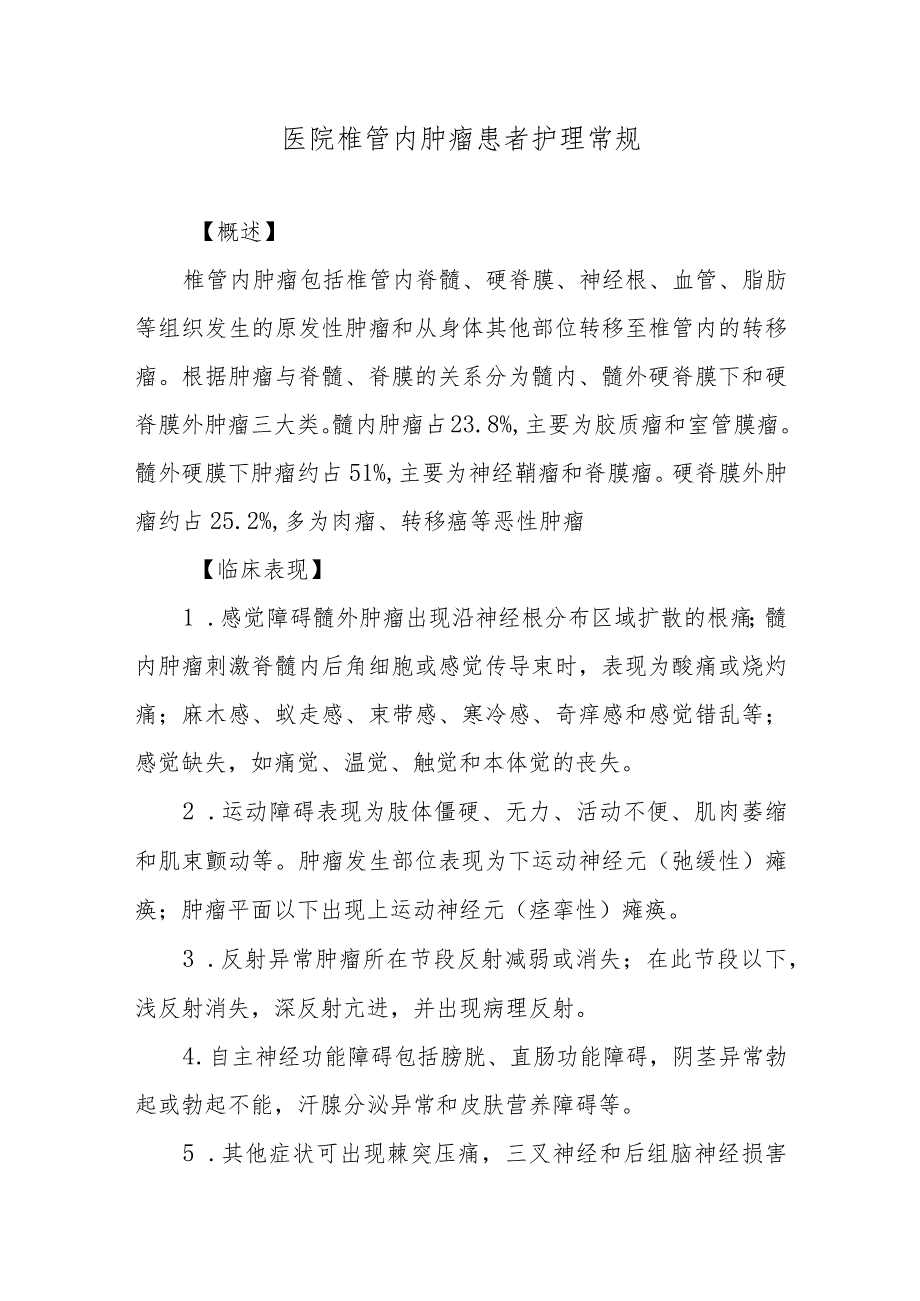 医院椎管内肿瘤患者护理常规
【概述】
椎管内肿瘤包括椎管内脊髓、硬脊膜、神经根、血管、脂肪
等组织发生的原发性肿瘤和从身体其他部位转移至椎管内的转移
瘤。根据肿瘤与脊髓、脊膜的关系分为髓内、髓外硬脊膜下和硬
脊膜外肿瘤三大类。髓内肿瘤占23.8%,主要为胶质瘤和室管膜瘤。
髓外硬膜下肿瘤约占51%,主要为神经鞘瘤和脊膜瘤。硬脊膜外肿
瘤约占25.2%,多为肉瘤、转移癌等恶性肿瘤
【临床表现】
1 .感觉障碍髓外肿瘤出现沿神经根分布区域扩散的根痛；髓
内肿瘤刺激脊髓内后角细胞或感觉传导束时，表现为酸痛或烧灼
痛；麻木感、蚁走感、束带感、寒冷感、奇痒感和感觉错乱等；
感觉缺失，如痛觉、温觉、触觉和本体觉的丧失。
2 .运动障碍表现为肢体僵硬、无力、活动不便、肌肉萎缩
和肌束颤动等。肿瘤发生部位表现为下运动神经元（弛缓性）瘫
痪；肿瘤平面以下出现上运动神经元（痉挛性）瘫痪。
3 .反射异常肿瘤所在节段反射减弱或消失；在此节段以下，
浅反射消失，深反射亢进，并出现病理反射。
4.自主神经功能障碍包括膀胱、直肠功能障碍，阴茎异常勃
起或勃起不能，汗腺分泌异常和皮肤营养障碍等。
5 .其他症状可出现棘突压痛，三叉神经和后组脑神经损害